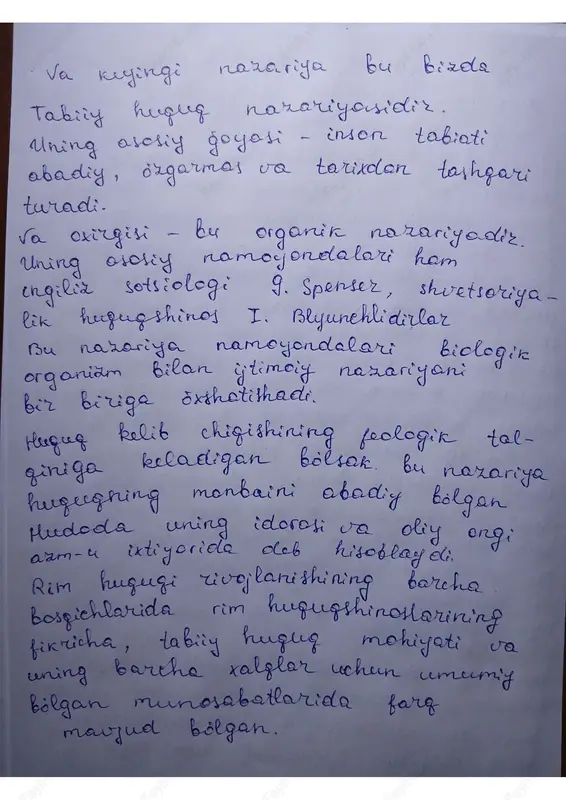 Va keyingi nazariya bu bizda
Tabiiy huquq nazariyasidir.
Uning asosiy ğoyasi - inson tabiati
abadiy, özgarmas va tarixdan tashqari
turadi.
Va oxirgisi - bu organik nazariyadir.
Uning asosiy namoyondalari ham
engiliz sotsiologi G. Spenser, shvetsariya-
lik huquqshinos I. Blyunchlidirlar
Bu nazariya namoyondalari biologik
organizm bilan ijtimoiy nazariyani
bir biriga öxshatishadi.
Huquq kelib chiqishining feologik tal-
qiniga keladigan bölsak bu nazariya
huquqning manbaini abadiy bölgan
Hudoda uning idorasi va oliy ongi
azm-u ixtiyorida deb hisoblaydi.
Rim huquqi rivojlanishining barcha
bosqichlarida rim huquqshinoslarining
fikricha, tabiiy huquq mohiyati va
uning barcha xalqlar uchun umumiy
bölgan munosabatlarida farq
mavjud bölgan.